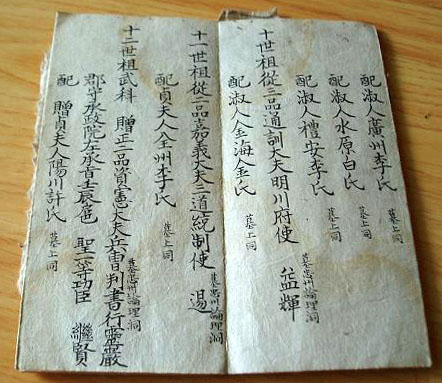 配淑人廣州李氏 墓上同
配淑人水原白氏 墓上同
配淑人禮安李氏 墓上同
十世祖從三品通訓大夫明川府使 益輝 墓忠州論理洞
配淑人金海金氏 墓上同
十一世祖從二品嘉義大夫三道統制使 墓忠州論理洞
配貞夫人全州李氏 墓上同
十二世祖武科 贈正二品資憲大夫兵曺判書行靈嚴 墓忠州論理洞
郡守承政院左承旨壬辰扈 聖二等功臣 繼賢
配 贈貞夫人陽川許氏 墓上同